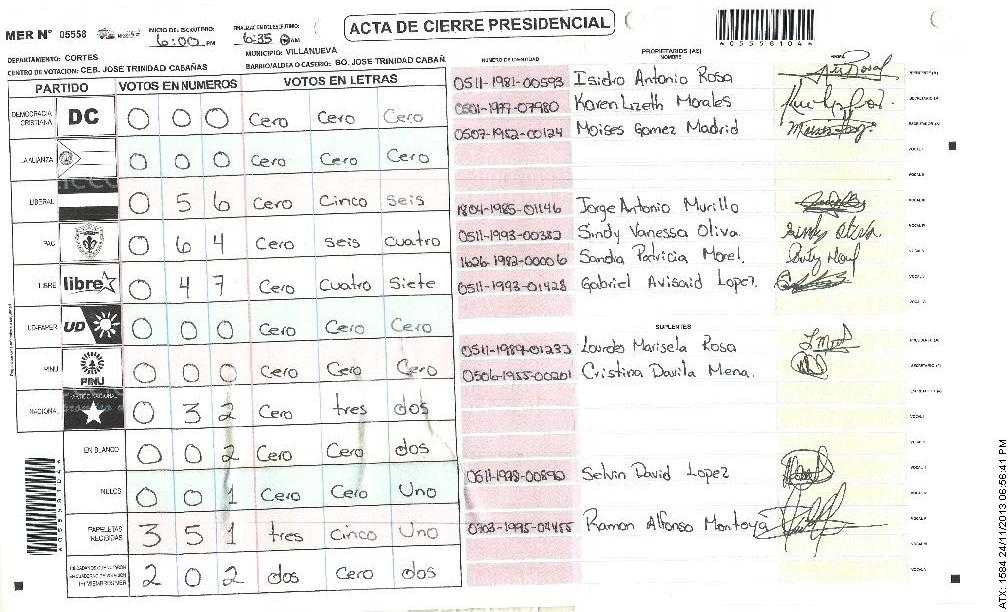 MER Nº 05558
INICIO DEL ESCRUTINIO:
6:00 PM
FINALIZACION DEL ESCRUTINIO:
6:35
ACTA DE CIERRE PRESIDENCIAL
A055581044
DEPARTAMENTO: CORTES
MUNICIPIO: VILLANUEVA
CENTRO DE VOTACION: CEB. JOSE TRINIDAD CABAÑAS
BARRIO/ALDEA O CASERIO: BO. JOSE TRINIDAD CABAÑ.
PARTIDO VOTOS EN NUMEROS VOTOS EN LETRAS
DEMOCRACIA CRISTIANA DC 0 0 0 Cero Cero Cero
LA ALIANZA 0 0 0 Cero Cero Cero
LIBERAL 0 5 6 Cero Cinco Seis
PAC 0 6 4 Cero seis cuatro
LIBRE libre 0 4 7 Cero Cuatro Siete
UD-FAPER UD 0 0 0 Cero Cero Cero
PINU PINU 0 0 0 Cero Cero Cero
NACIONAL 0 3 2 Cero tres dos
EN BLANCO 0 0 2 Cero Cero dos
NULOS 0 0 1 Cero Cero Uno
PAPELETAS RECIBIDAS 3 5 1 tres Cinco Uno
2 0 2 dos Cero dos
NUMERO DE IDENTIDAD PROPIETARIOS (AS) NOMBRE FIRMA
0511-1981-00593 Isidro Antonio Rosa
0501-1977-07980 Karen Lizeth Morales
0507-1982-00124 Moises Gomez Madrid
1804-1985-01146 Jorge Antonio Murillo
0511-1993-00382 Sindy Vanessa Oliva
1626-1982-00006 Sandia Patricia Morel.
0511-1993-01428 Gabriel Avisaid Lopez.
SUPLENTES
0511-1989-01233 Lourdes Marisela Rosa
0506-1955-00201 Cristina Davila Mena.
0511-1978-00890 Selvin David Lopez
0703-1995-04455 Ramon Alfonso Montoya
ATX: 1584 24/11/2013 06:56:41 PM